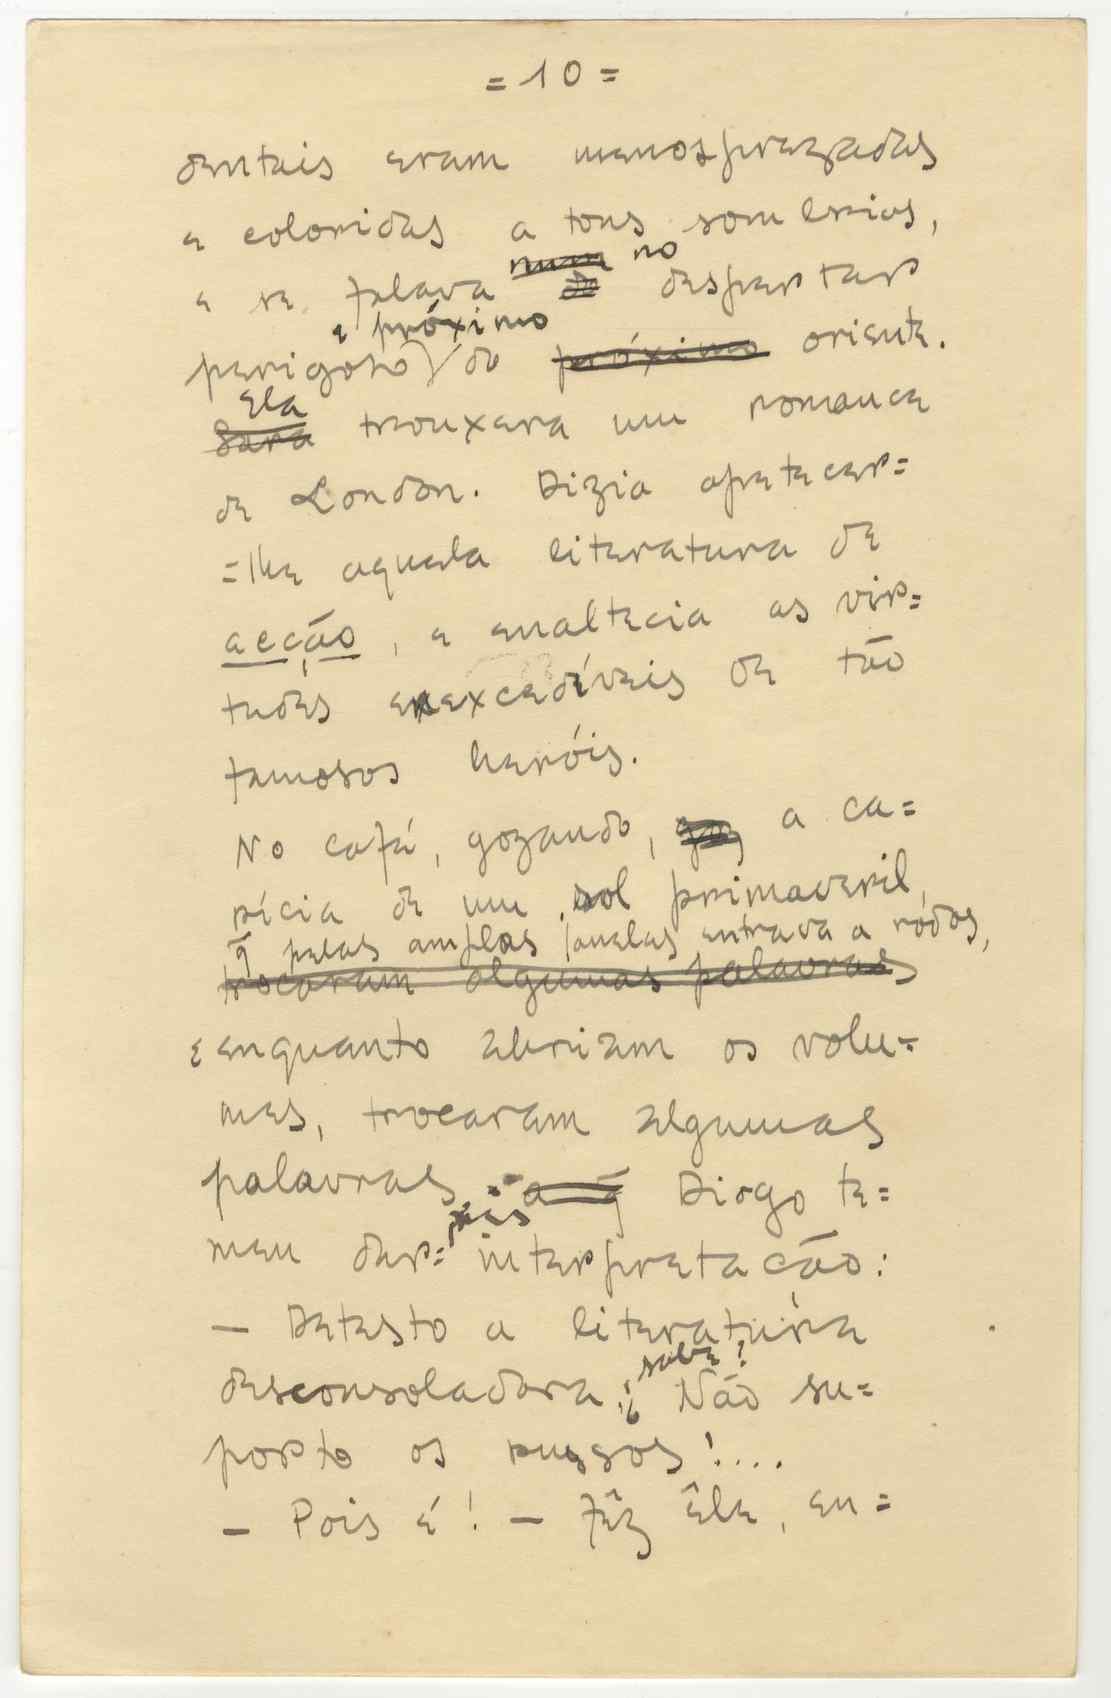 = 10 =
dentais eram menosprezadas
e coloridas a tons sombrios,
num no
e se falava do despertar
e próximo
perigoso do próximo oriente.
Ela
Sara trouxera um romance
de London. Dizia apetecer=
=lhe aquela literatura de
acção, e enaltecia as vir=
tudes inexcedíveis de tão
famosos heróis.
No café, gozando, goz a ca=
rícia de um sol primaveril,
q̃ pelas amplas janelas entrava a ródos,
trocaram algumas palavras
e enquanto abriam os volu=
mes, trocaram algumas
palavras a q̃ Diogo te=
meu der= interpretação:
— Detesto a literatura
sabe?
desconsoladora; Não su=
porto os russos!....
— Pois é! — fêz êle, en=